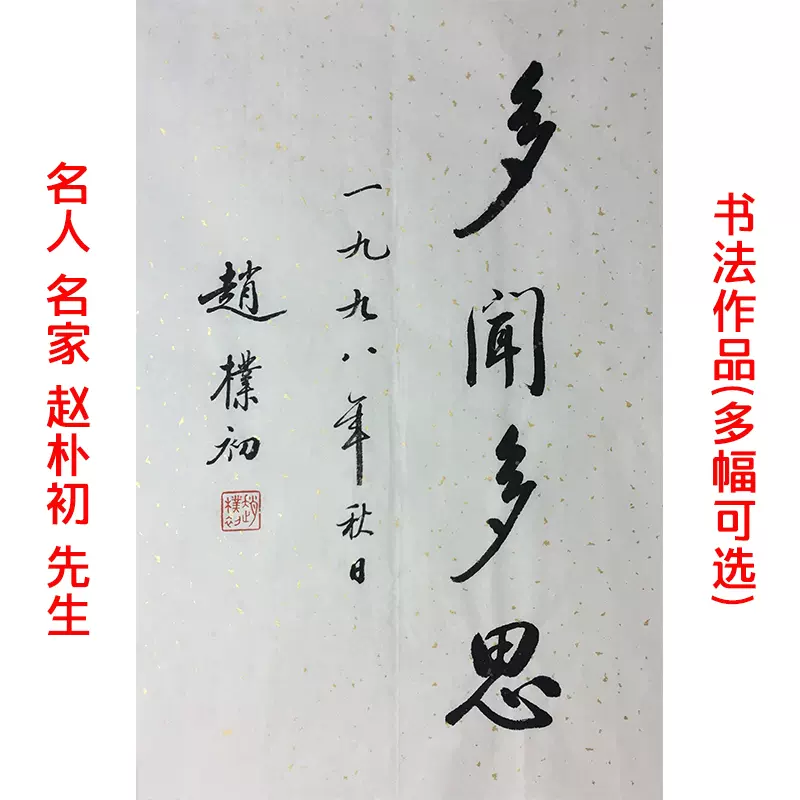 多闻多思
一九九八年秋日
趙樸初
趙樸初
名人 名家 赵朴初 先生
书法作品(多幅可选)